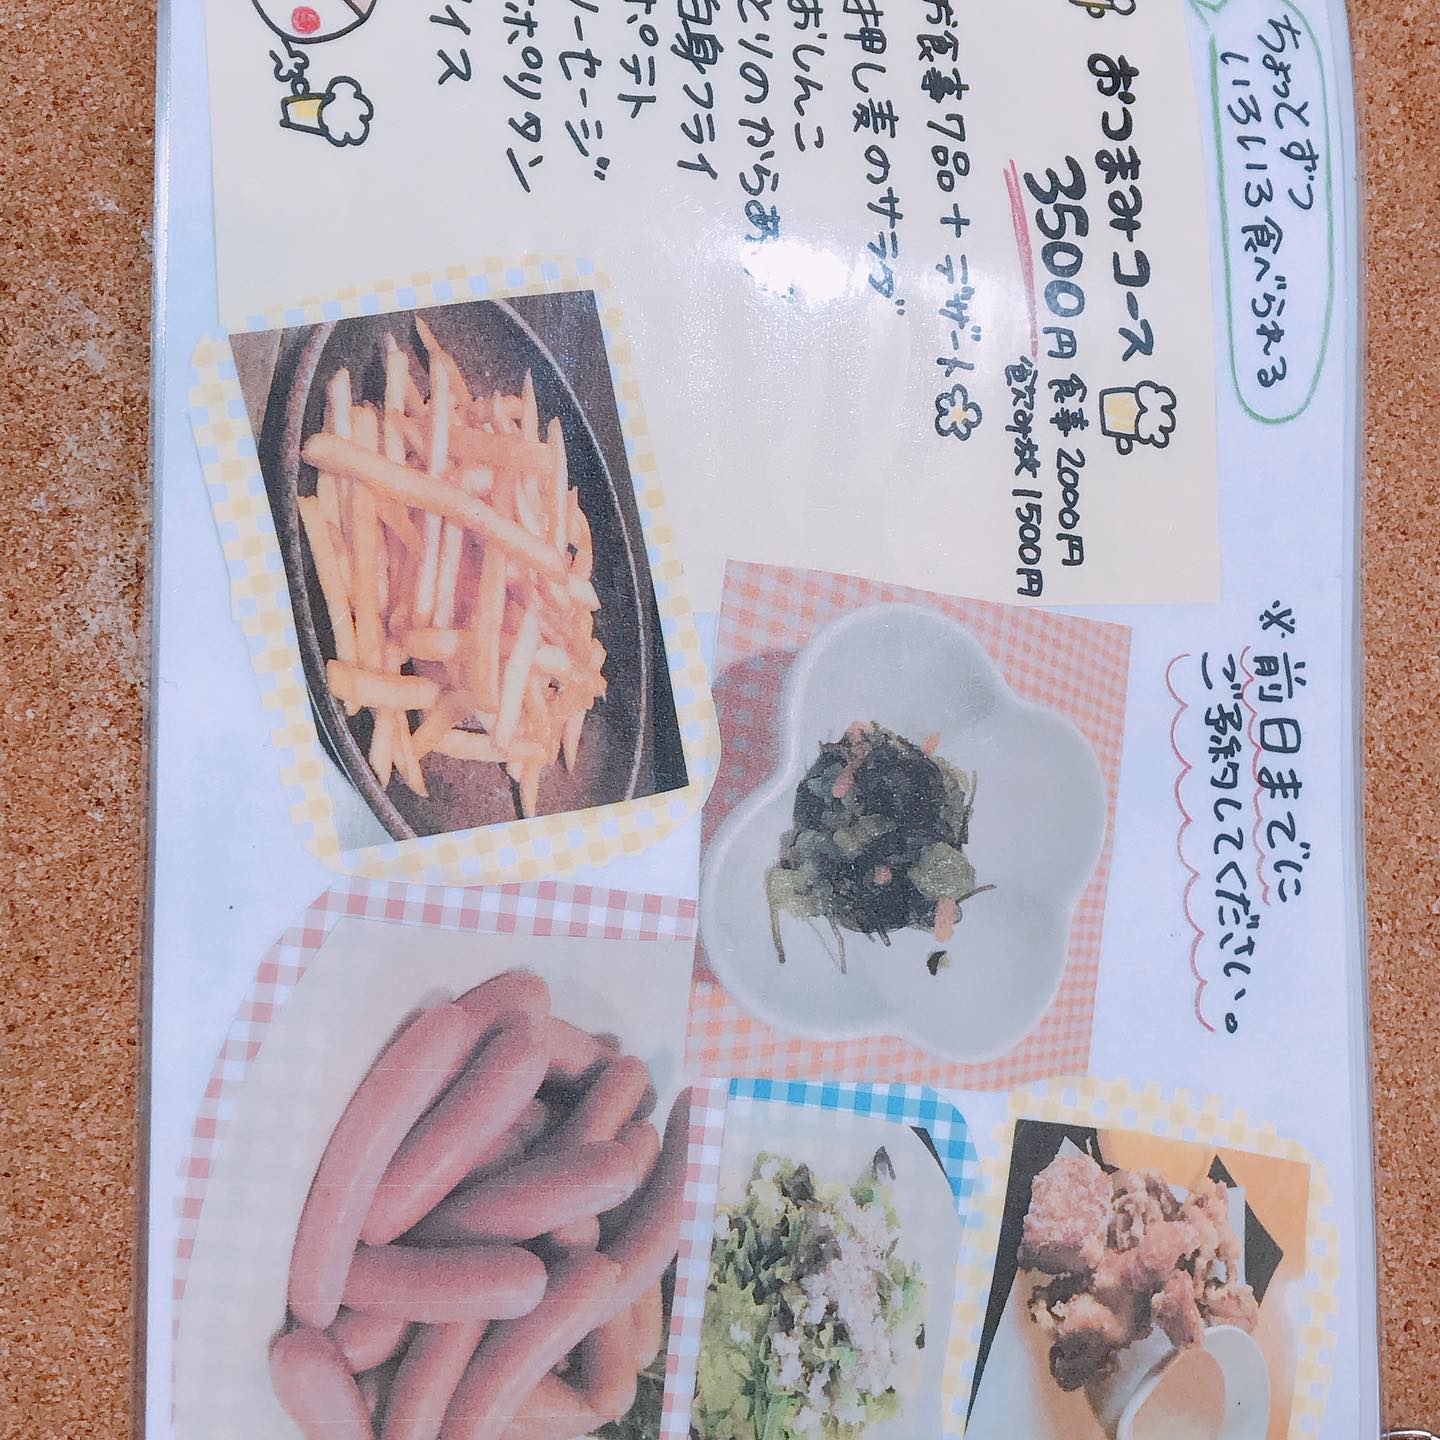 ちょっとずつ
いろいろ食べられる
おつまみコース
3500円 食事 2000円
飲み放 1500円
お食事7品+デザート
押し麦のサラダ
おしんこ
とりのからあ
白身フライ
ポテト
ソーセージ
ナポリタン
アイス
※前日までに
ご予約してください。